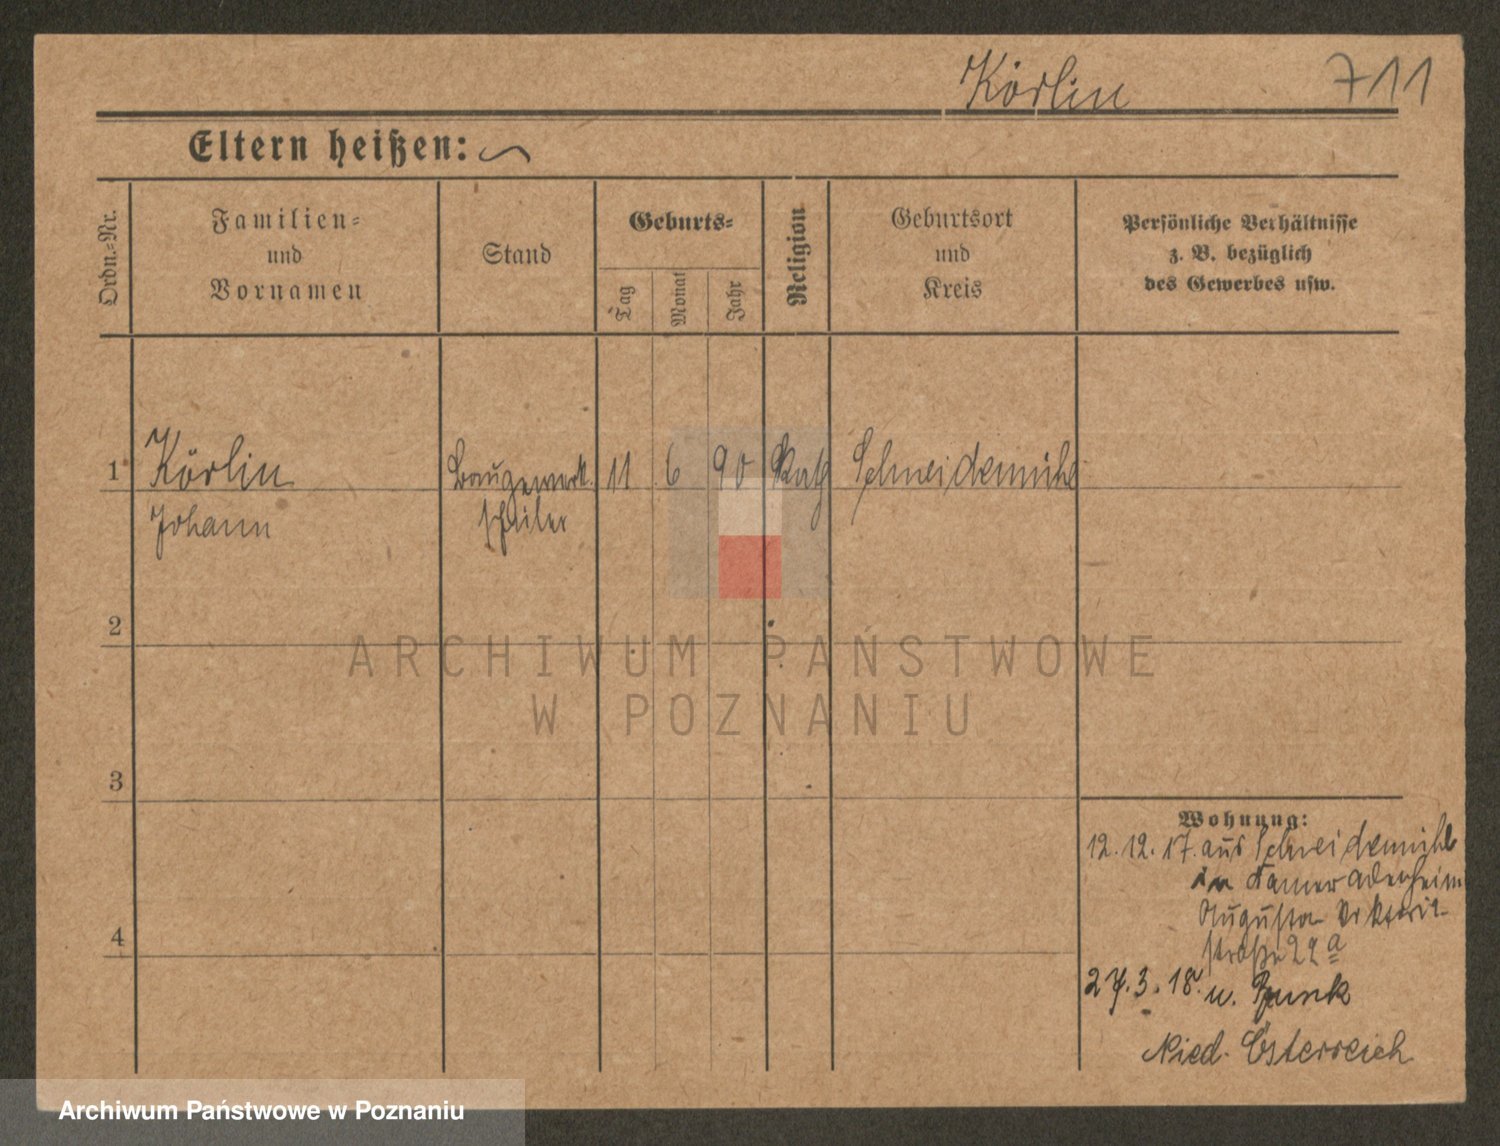 Körlin 711
Eltern heißen:
Ordn.=Nr.
Familien=
und
Vornamen
Stand
Geburts=
Tag
Monat
Jahr
Religion
Geburtsort
und
Kreis
Persönliche Verhältnisse
z. B. bezüglich
des Gewerbes usw.
1 Körlin Baugewerk. 11 6 90 Kath Schneidemühl
Johann schüler
2
3
4
Wohnung:
12. 12. 17. aus Schneidemühl
in Kameradenheim
Augusta Viktoria
straße 22 a
27. 3. 18. n.
Nied. Österreich
ARCHIWUM PAŃSTWOWE
W POZNANIU
Archiwum Państwowe w Poznaniu